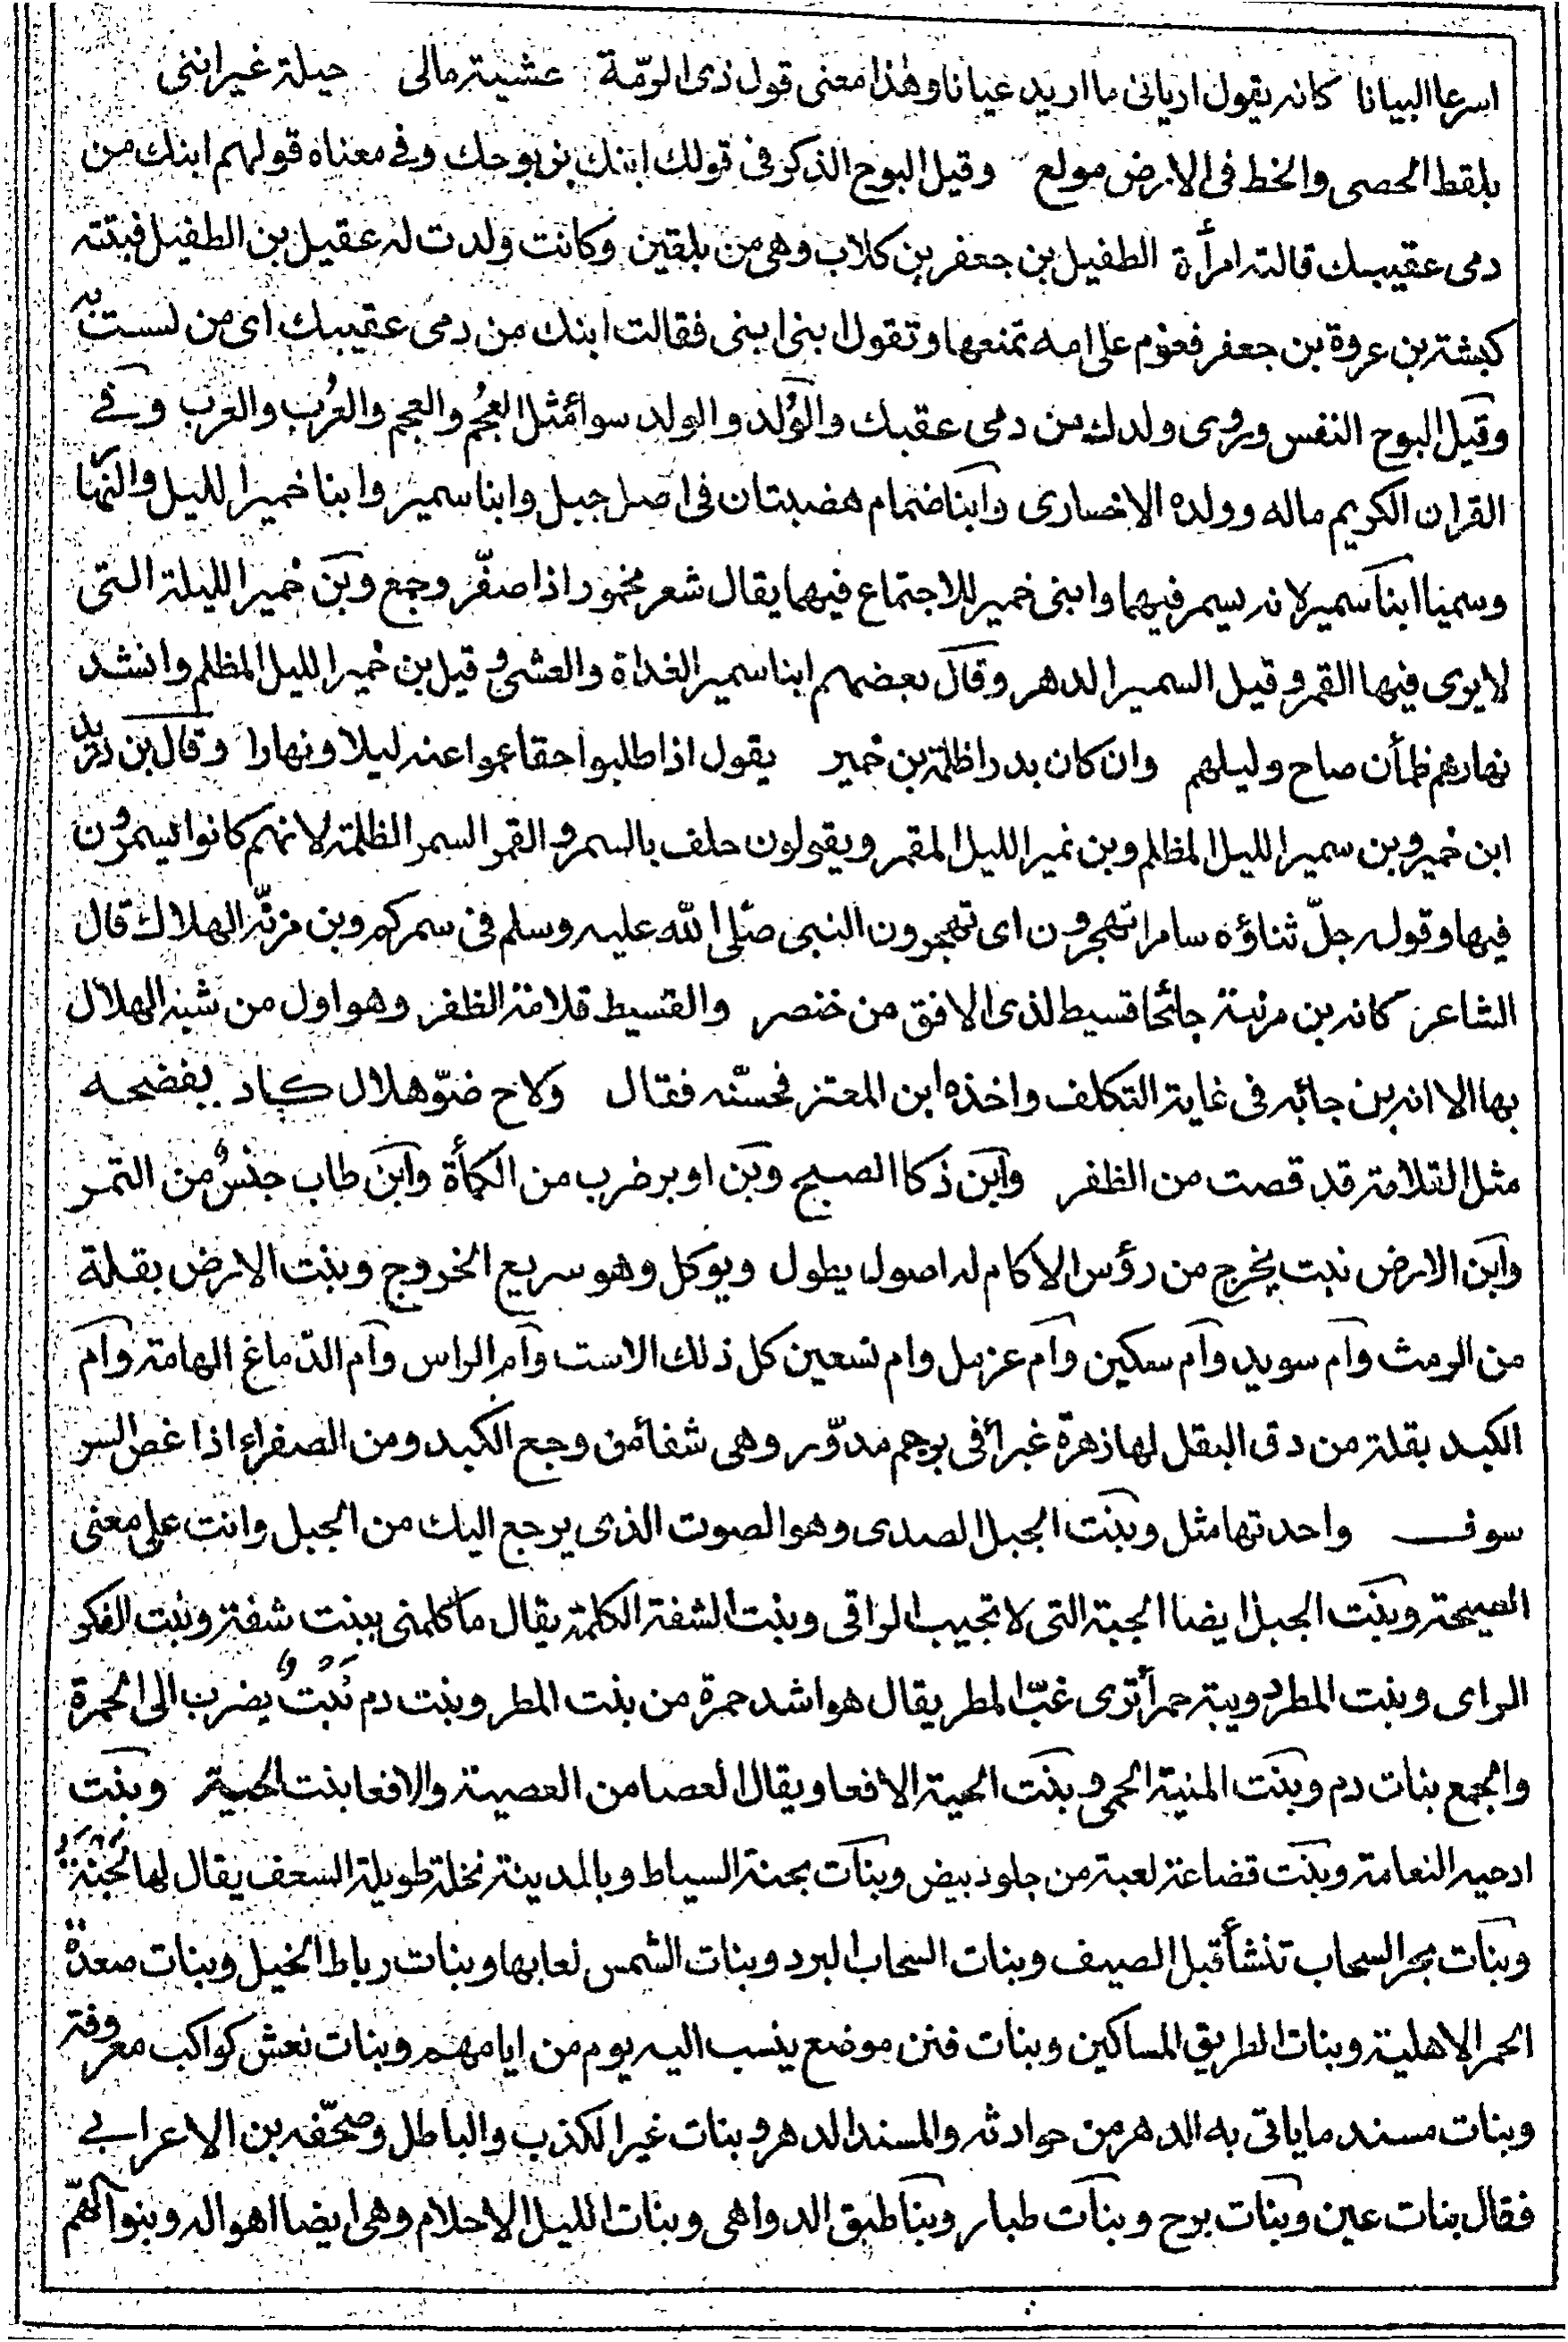 اسرعا البيانا كانه يقول اريانى ما اريد عيانا وهذا معنى قول ذى الرمّة عشيته مالى حيلة غير اننى
بلقط الحصى والخط فى الارض مولع وقيل البوح الذكر فى قولك ابنك بن بوحك وفى معناه قولهم ابنك من
دمى عقيبيك قالته امرأة الطفيل بن جعفر بن كلاب وهى من بلقين وكانت ولدت له عقيل بن الطفيل فبتته
كبشة بن عروة بن جعفر فعزم على امه تمنعها وتقول ابنى ابنى فقالت ابنك من دمى عقيبيك اى من نسست به
وقيل البوح النفس ويروى ولدك من دمى عقبك والوُلد والولد سوا مثل العُجُم والعجم والعُرب والعرب وفى
القران الكريم ماله وولده الا خسارى وابنا ضمام هضبتان فى اصل جبل وابنا سمير وابنا خمير الليل والنها
وسميا ابنا سمير لانه يسمر فيهما وابنى خمير للاجتماع فيهما يقال شعر مخمور اذا صفّر وجمع وبن خمير الليلة التى
لا يرى فيها القمر وقيل السمير الدهر وقال بعضهم ابنا سمير الغداة والعشى وقيل بن خمير الليل المظلم وانشد
نهارهم ظمأن صاح وليلهم وان كان بدرا ظلمة بن خمير يقول اذا طلبوا حقا عموا عنه ليلا ونهارا وقال بن دريد
ابن خمير وبن سمير الليل المظلم وبن نمير الليل المقمر ويقولون حلف بالسمر والقمر السمر الظلمة لانهم كانوا يسمرون
فيها وقوله جلّ ثناؤه سامرا تهجرون اى تهجرون النبى صلى الله عليه وسلم فى سمركم وبن مزنه الهلال قال
الشاعر كانه بن مزنة جانحا قسيط لذى الافق من خنصر والقسيط قلامة الظفر وهو اول من شبه الهلال
بها الا انه بن جائبه فى غاية التكلف واخذه ابن المعتز فحسّنه فقال ولاح ضوّ هلال كاد يفضحه
مثل القلامة قد قصت من الظفر وابن ذكا الصبح وبن اوبر ضرب من الكمأة وابن طاب جنس من التمر
وابن الارض نبت يخرج من رؤس الاكام له اصول يطول ويوكل وهو سريع الخروج وبنت الارض بقلة
من الرمث وام سويد وام سكين وام عزمل وام تسعين كل ذلك الاست وام الراس وام الدّماغ الهامة وام
الكبد بقلة من دق البقل لها زهرة غبرا فى برعم مدوّر وهى شفا من وجع الكبد ومن الصفراء اذا غص السر
سوف واحدتها مثل وبنت الجبل الصدى وهو الصوت الذى يرجع اليك من الجبل وانت على معنى
الصيحة وبنت الجبل ايضا الجبة التى لا تجيب الراقى وبنت الشفة الكلمة يقال ما كلمنى ببنت شفة وبنت الفكر
الراى وبنت المطر دويبة حمرا ترى غبّ المطر يقال هو اشد حمرة من بنت المطر وبنت دم نَبْتٌ يضرب الى الحمرة
والجمع بنات دم وبنت المنية الحمى وبنت الحية الافعا ويقال العصا من العصية والافعا بنت الحية وبنت
ادحيه النعامة وبنت قضاعة لعبة من جلود بيض وبنات بحنة السياط وبالمدينة نخلة طويلة السعف يقال لها بحنة
وبنات بحر السحاب تنشأ قبل الصيف وبنات السحاب البرد وبنات الشمس لعابها وبنات رباط الخيل وبنات صعدة
الحمر الاهلية وبنات الطريق المساكين وبنات فنن موضع ينسب اليه يوم من ايامهم وبنات نعش كواكب معروفة
وبنات مسند ما ياتى به الدهر من حوادثه والمسند الدهر وبنات غير الكذب والباطل وصحّفه بن الاعرابى
فقال بنات عين وبنات برح وبنات طبار وبنا طبق الدواهى وبنات الليل الاحلام وهى ايضا اهواله وبنوا الهمّ